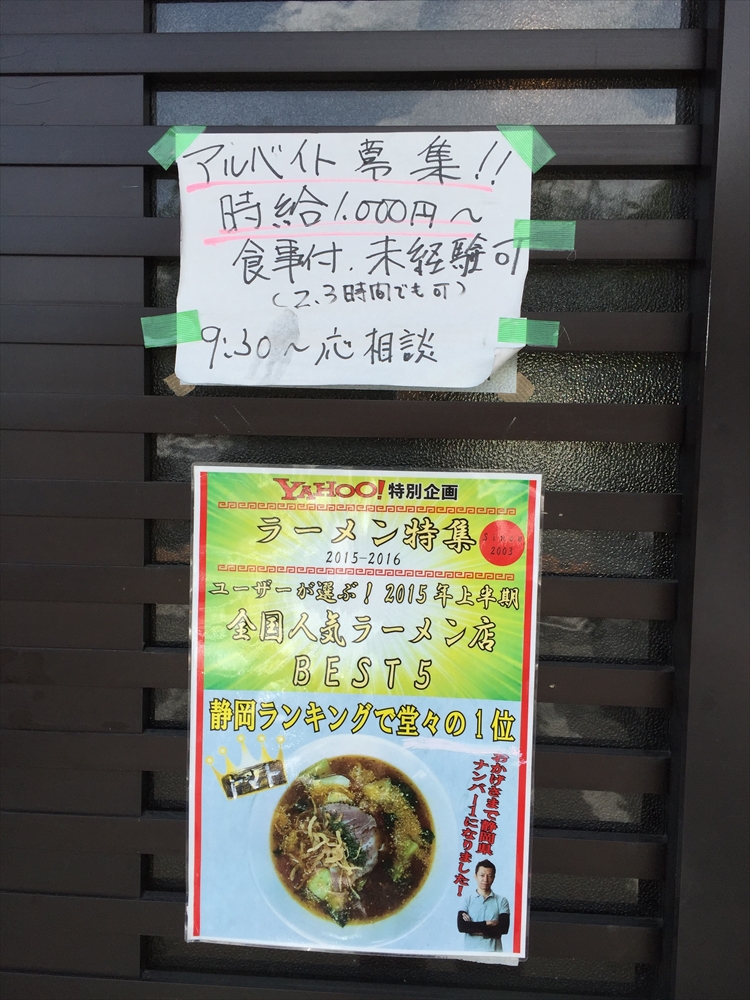 アルバイト募集!!
時給1.000円～
食事付.未経験可
(2.3時間でも可)
9:30～応相談
YAHOO!特別企画
ラーメン特集
Since
2003
2015-2016
ユーザーが選ぶ！2015年上半期
全国人気ラーメン店
BEST5
静岡ランキングで堂々の1位
トマト
おかげさまで静岡県
ナンバー1になりました！